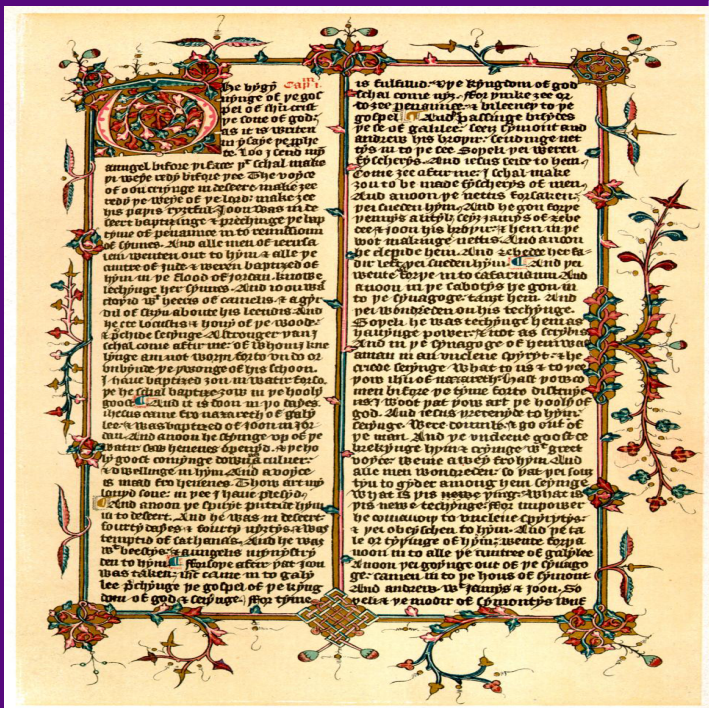 he bygȳ Capᵐ i.
nynge of þe gos
pel of ihū crist
þe sone of god;
as it is writen
in ysaye þe ꝓphe
te. Loo I send mȳ
aungel bifore þi face; þᵗ schal make
þi weye redy bifore þee The voyce
of oon cryinge in desert make zee
redy þe weye of þe lord; make zee
his paþis ryztful. Joon was in de
sert baptizinge & prechinge þe bap
tyme of penaunce in to remissioun
of synnes. And alle men of ierusa
lem wenten out to hym & alle þe
cuntre of jude & weren baptized of
hym in þe flood of jordan. know
lechynge her synnes. And ioon was
cloþid wᵗ heeris of camelis & a gyr
dil of skyn aboute his leendis And
he eet locustis & hony of þe wode;
& p̄chide seyinge. A stronger þan I
schal come aftir me; of whom I kne
lynge am not worþi for to vn do or
vnbynde þe þwonge of his schoon.
I haue baptized zou in watir forso
þe he schal baptize zow in þe hooly
goost And it is doon in þo dayes.
ihesus came fro nazareth of galy
lee & was baptized of joon in jor
dan. And anoon he styinge up of þe
watir saw heuenes openyd. & þe ho
ly goost comynge doun as a culuer.
& dwellinge in hym. And a voyce
is maad fro heuenes. Thow art my
louyd sone; in þee I haue plesyd.
And anoon þe spiryt puttide hym
in to desert. And he was in desert
fourty dayes & fourty nyztis. & was
temptid of sathanas. And he was
wᵗ beestys. & aungelis mynystry
den to hym Forsoþe after þat joon
was taken; ihc came in to galy
lee p̄chynge þe gospel of þe kyng
dom of god & seyinge. For tyme
is fulfillid. & þe kyngdom of god
schal come nyz. For þinke zee or
do zee penaunce. & bileeuey to þe
gospel And passinge bisydes
þe se of galilee. seez symont and
andrew his broþir. seindinge net
tys in to þe see. Soþeli þei weren
fyscherys. And iesus seide to hem
Come zee after me. I schal make
zou to be made fyscherys of men.
And anoon þe nettis forsaken;
þei sueden hym. And he gon forþe
þennys a lityl; seez jamys of zebe
dee & joon his broþir; & hem in þe
bot makinge nettis. And anoon
he clepide hem. And zebede her fa
dir left. þei sueden hym. And þei
wente forþe in to cafarnaum And
anoon in þe sabotys he gon in
to þe synagoge tauzt hem. And
þei wondreden on his techynge.
Soþeli he was techynge hem as
hauynge power. & not as scribis
And in þe synagoge of hem was
a man in an vnclene spyryt. & he
criede seyinge What to us & to þee
þow ihū of nazareth hast þow co
men bifore þe tyme forto distruye
us? I woot þat þow art þe hooly of
god. And iesus þretenyde to hym
seyinge. Were doumb. & go out of
þe man And þe vnclene goost de
brekynge hym & cryinge wᵗ greet
voyce; wente awey fro hym. And
alle men wondreden; so þat þei souz
tyn to gyder among hem seyinge
What is þis newe þing. What is
þis newe techynge. for in power
he comaundiþ to vnclene spyrytys;
& þei obeyschen to hym. And þe ta
le or tyþinge of hym; wente forþ a
noon in to alle þe cuntree of galylee
Anoon þei goynge out of þe synago
ge. camen in to þe hous of symont
And andrew. wᵗ jamys & joon. So
þeli & þe modir of symontys wif